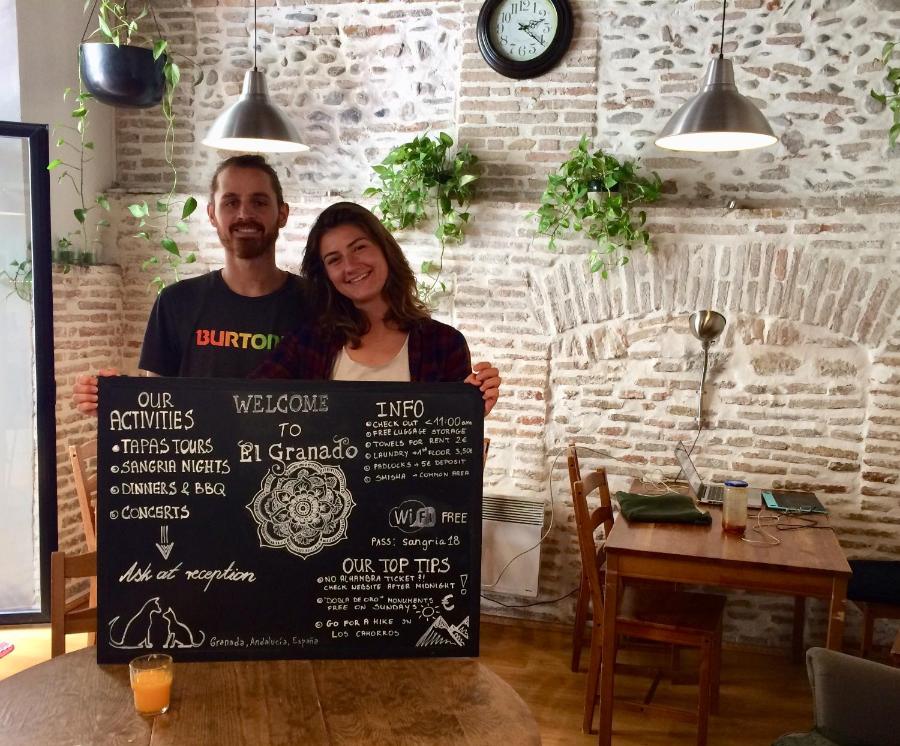 BURTON
OUR
ACTIVITIES
• TAPAS TOURS
• SANGRIA NIGHTS
• DINNERS & BBQ
• CONCERTS
Ask at reception
WELCOME
TO
El Granado
Granada, Andalucía, España
INFO
CHECK OUT <11:00am
FREE LUGGAGE STORAGE
TOWELS FOR RENT 2€
LAUNDRY → 1st FLOOR 3,50€
PADLOCKS → 5€ DEPOSIT
SMISHA → COMMON AREA
WiFi FREE
PASS: sangria18
OUR TOP TIPS
NO ALHAMBRA TICKET?!
CHECK WEBSITE AFTER MIDNIGHT!
"DOBLA DE ORO" MONUMENTS
FREE ON SUNDAYS €
GO FOR A HIKE IN
LOS CAHORROS